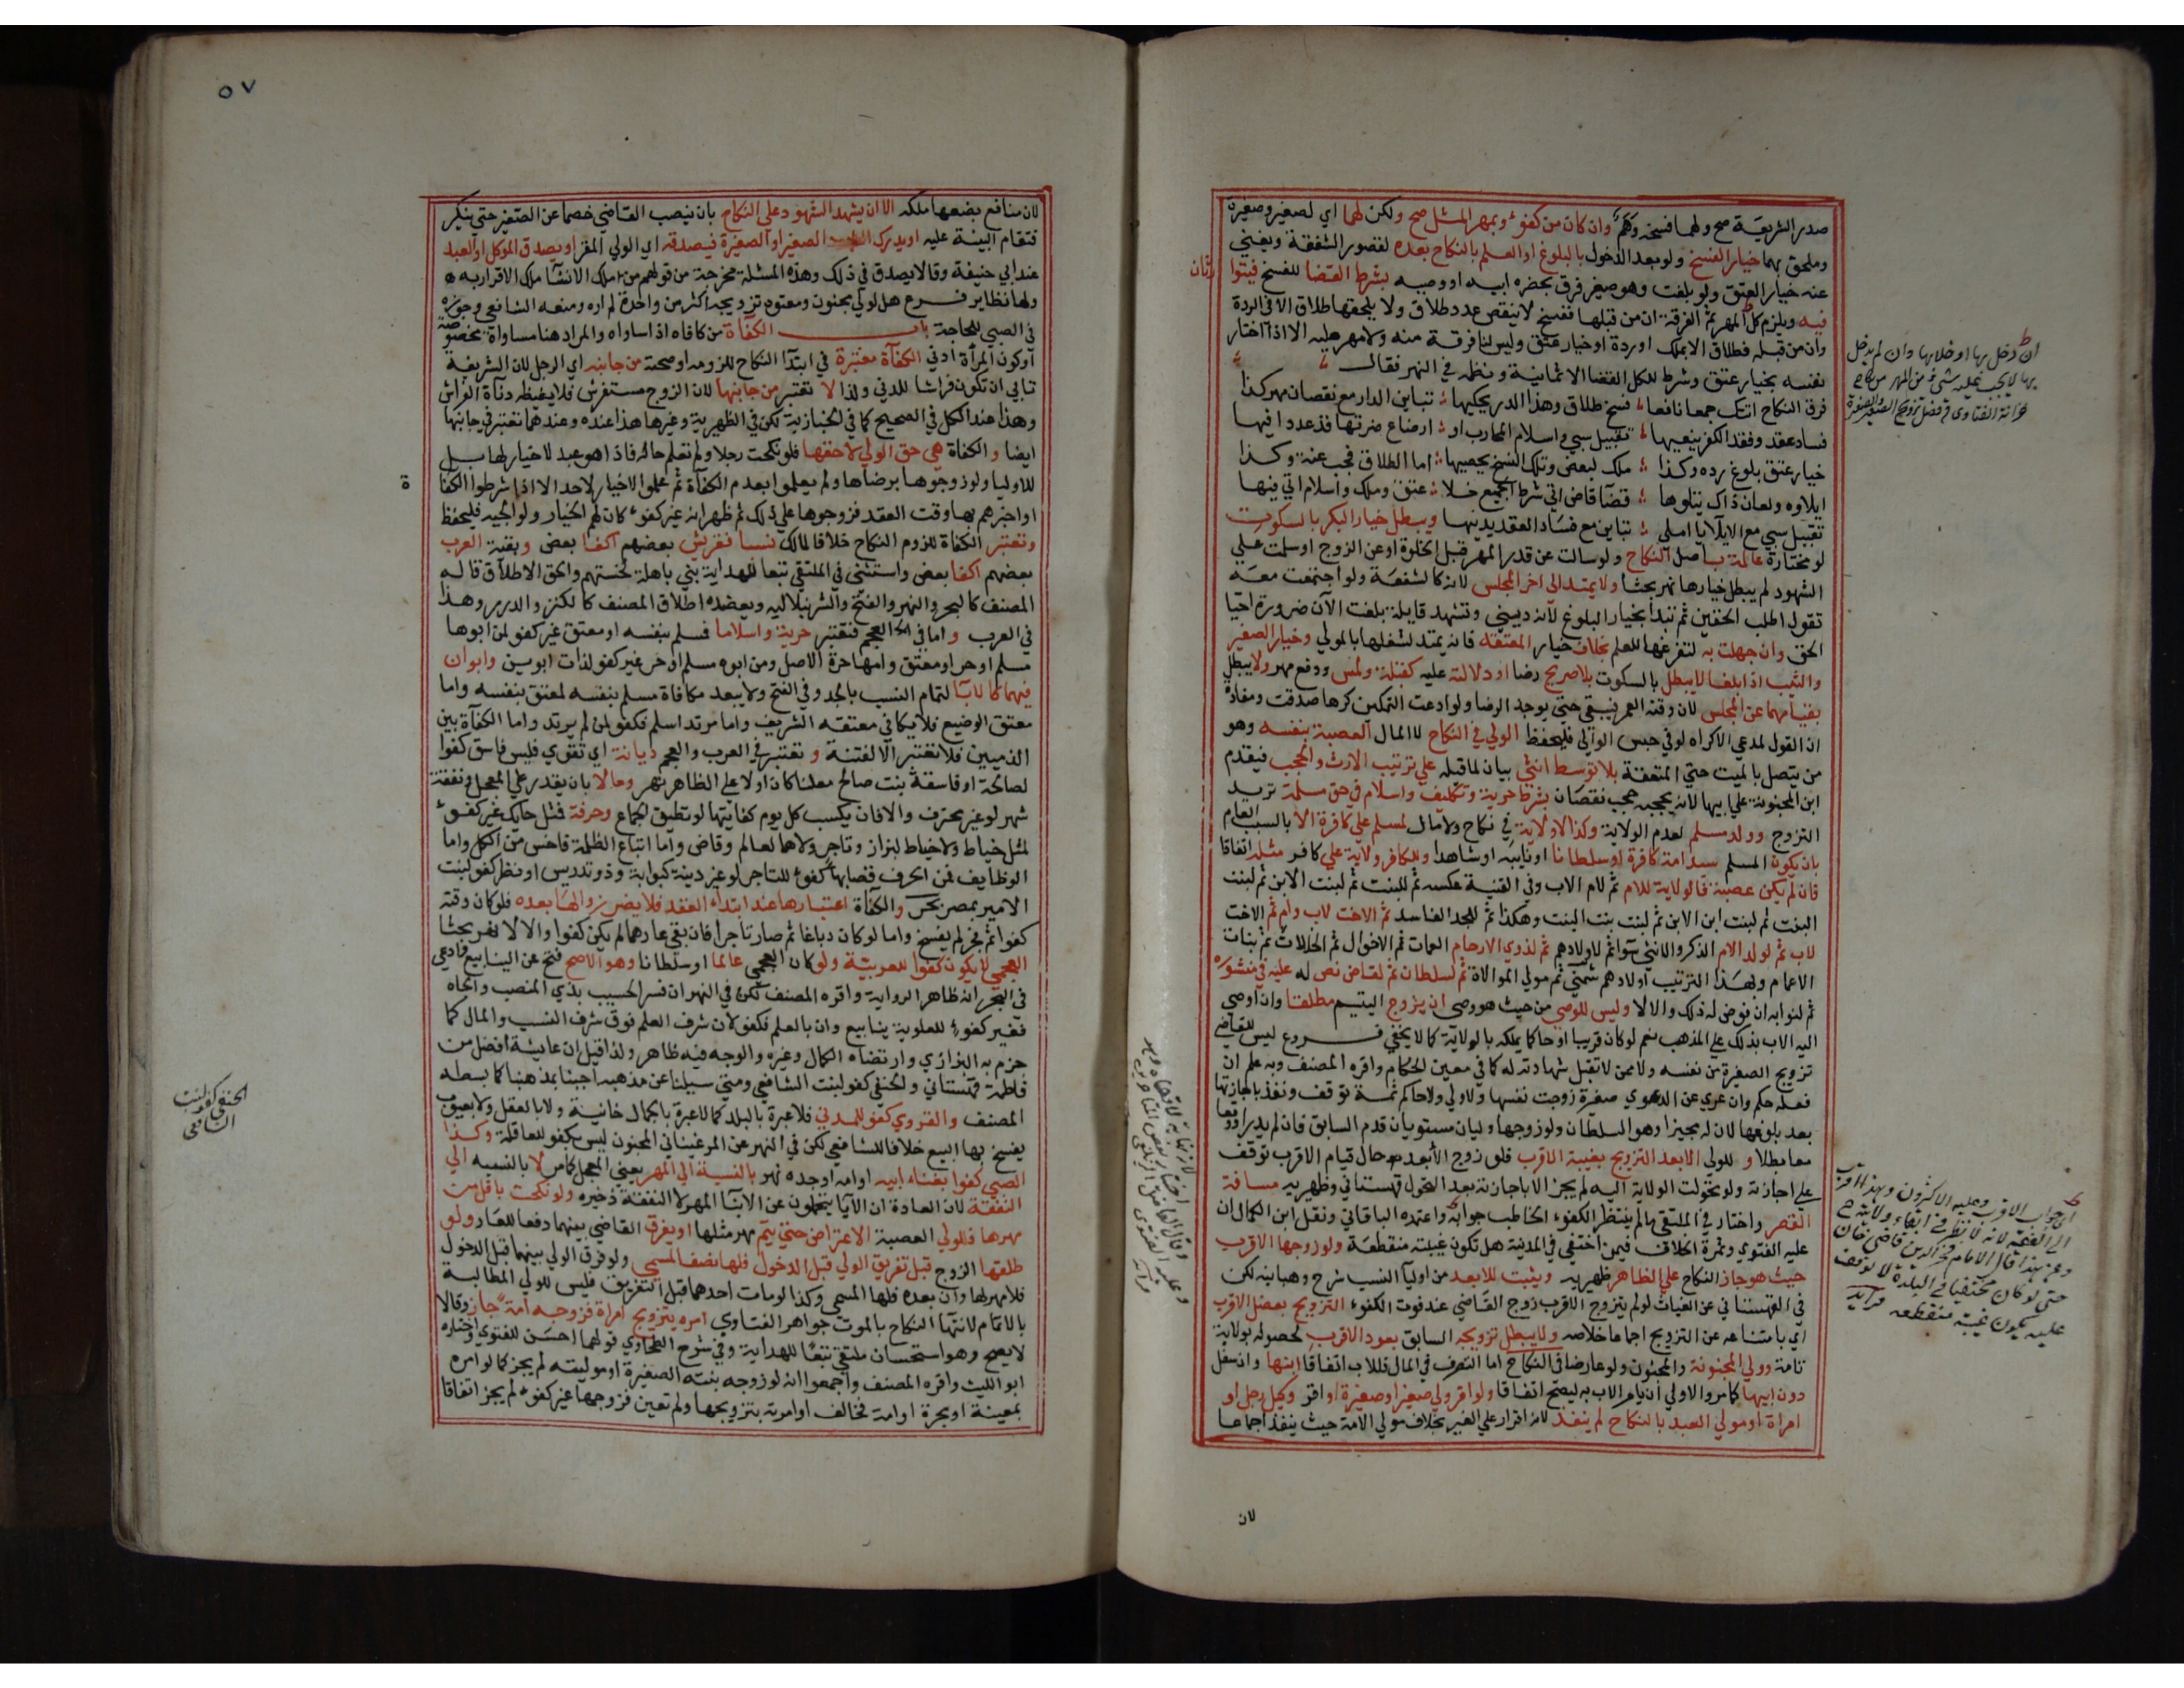 صدر الشريعة صح ولهما فسخه وهم وان كان من كفؤ وبمهر المثل صح ولكن لهما اي لصغير وصغيرة
وملحق بهما خيار الفسخ ولو بعد الدخول بالبلوغ او العلم بالنكاح بعده لقصور الشفقة ويغني
عنه خيار العتق ولو بلغت وهو صغير فرق بحضرة ابيه او وصيه بشرط القضا للفسخ فيتوارثان
فيه ويلزم كل المهر ثم الفرقة ان من قبلها ففسخ لا ينقص عدد طلاق ولا يلحقها طلاق الا في الردة
وان من قبله فطلاق الا بملك او ردة او خيار عتق وليس لنا فرقة منه ولا مهر عليه الا اذا اختار
نفسه بخيار عتق وشرط للكل القضا الا ثمانية ونظم في النهر فقال
فرق النكاح اتتك جمعا نافعا فسخ طلاق وهذا الدر يحكيها تباين الدار مع نقصان مهر كذا
فساد عقد وفقد الكفؤ ينعيها تقبيل سبي واسلام المحارب او ارضاع ضرتها قد عددا فيها
خيار عتق بلوغ رده وكذا ملك لبعض وتلك الفسخ يحصيها اما الطلاق فجب عنة وكذا
ايلاوه ولعان ذاك يتلوها قضا قاض اتي شرط الجميع خلا عتق وملك واسلام اتي فيها
تقبيل سبي مع الايلا يا املي تباين مع فساد العقد يدنيها ويبطل خيار البكر بالسكوت
لو مختارة عالمة باصل النكاح ولو سالت عن قدر المهر قبل الخلوة او عن الزوج او سلمت علي
الشهود لم يبطل خيارها نهر بحثا ولا يمتد الى اخر المجلس لانه كالشفعة ولو اجتمعت معه
تقول اطلب الحقين ثم تبدا بخيار البلوغ لانه ديني وتشهد قايلة بلغت الآن ضرورة احيا
الحق وان جهلت به لتفرغها للعلم بخلاف خيار المعتقة فانه يمتد لشغلها بالمولي وخيار الصغير
والثيب اذا بلغا لا يبطل بالسكوت بلا صريح رضا او دلالة عليه كقبلة ولمس ودفع مهر ولا يبطل
بقيامهما عن المجلس لان وقته العمر فيبقي حتى يوجد الرضا ولو ادعت التمكين كرها صدقت ومفاده
ان القول لمدعي الاكراه لو في حبس الوالي فليحفظ الولي في النكاح لا المال العصبة بنفسه وهو
من يتصل بالميت حتي المعتقة بلا توسط انثي بيان لما قبله علي ترتيب الارث والحجب فيقدم
ابن المجنونة علي ابيها لانه يحجبه حجب نقصان بشرط حرية وتكليف واسلام في حق مسلمة تريد
التزوج وولد مسلم لعدم الولاية وكذا لا ولاية في نكاح ولا مال لمسلم علي كافرة الا بالسبب العام
بان يكون المسلم سيد امة كافرة او سلطانا او نايبه او شاهدا وللكافر ولاية علي كافر مثله اتفاقا
فان لم يكن عصبة فالولاية للام ثم لام الاب وفي القنية عكسه ثم للبنت ثم لبنت الابن ثم لبنت
البنت ثم لبنت ابن الابن ثم لبنت بنت البنت وهكذا ثم للجد الفاسد ثم الاخت لاب وام ثم الاخت
لاب ثم لولد الام الذكر والانثي سوا ثم لاولادهم ثم لذوي الارحام العمات ثم الاخوال ثم الخالات ثم بنات
الاعمام وبهذا الترتيب اولادهم شمني ثم مولي الموالاة ثم لسلطان ثم لقاض نص له عليه في منشوره
ثم لنوابه ان فوض له ذلك والا لا وليس للوصي من حيث هو وصي ان يزوج اليتيم مطلقا وان اوصي
اليه الاب بذلك علي المذهب نعم لو كان قريبا او حاكما يملكه بالولاية كما لا يخفي فروع ليس للقاضي
تزويج الصغيرة من نفسه ولا ممن لا تقبل شهادته له كما في معين الحكام واقره المصنف وبه علم ان
فعله حكم وان عري عن الدعوي صغيرة زوجت نفسها ولا ولي ولا حاكم ثمة توقف ونفذ باجازتها
بعد بلوغها لان له مجيزا وهو السلطان ولو زوجها وليان مستويان قدم السابق فان لم يدر او وقعا
معا بطلا وللولي الابعد التزويج بغيبة الاقرب فلو زوج الابعد حال قيام الاقرب توقف
علي اجازته ولو تحولت الولاية اليه لم يجز الا باجازته بعد التحول قهستاني وظهيريه مسافة
القصر واختار في الملتقي ما لم ينتظر الكفوء الخاطب جوابه واعتمده الباقاني ونقل ابن الكمال ان
عليه الفتوي وثمرة الخلاف فيمن اختفي في المدينة هل تكون غيبته منقطعة ولو زوجها الاقرب
حيث هو جاز النكاح علي الظاهر ظهيريه ويثبت للابعد من اوليآ النسب شرح وهبانيه لكن
في القهستاني عن الغياث لو لم يتزوج الاقرب زوج القاضي عند فوت الكفوء التزويج بعضل الاقرب
اي بامتناعه عن التزويج اجماعا خلاصه ولا يبطل تزويجه السابق بعود الاقرب لحصوله بولاية
تامة وولي المجنونة والمجنون ولو عارضا في النكاح اما التصرف في المال فللاب اتفاقا ابنها وان سفل
دون ابيها كما مر والاولي ان يامر الاب به ليصح اتفاقا ولو اقر ولي صغير او صغيرة او اقر وكيل رجل او
امراة او مولي العبد بالنكاح لم ينفذ لانه اقرار علي الغير بخلاف مولي الامة حيث ينفذ اجماعا
لان
ان دخل بها او خلا بها وان لم يدخل
بها لا يجب عليه شي من المهر
خزانة الفتاوى في فصل تزويج الصغير والصغيرة
٥٧
لان منافع بضعها ملكه الا ان يشهد الشهود على النكاح بان ينصب القاضي خصما عن الصغير حتي ينكر
فتقام البينة عليه او يدرك الصغير او الصغيرة فيصدقه اي الولي المقر او يصدق الموكل او العبد
عند ابي حنيفة وقالا يصدق في ذلك وهذه المسئلة مخرجة من قولهم من ملك الانشآ ملك الاقرار به
ولها نظاير فرع هل لولي مجنون ومعتوه تزويجه اكثر من واحدة لم اره ومنعه الشافعي وجوزه
في الصبي للحاجة باب الكفآة من كافاه اذا ساواه والمراد هنا مساواة مخصوصة
او كون المرأة ادني الكفآة معتبرة في ابتدآ النكاح للزومه او صحته من جانبه اي الرجل لان الشريفة
تابي ان تكون فراشا للدني ولذا لا تعتبر من جانبها لان الزوج مستفرش فلا يغيظه دنآة الفراش
وهذا عند الكل في الصحيح كما في الخبازية لكن في الظهيرية وغيرها هذا عنده وعندهما تعتبر في جانبها
ايضا والكفاة هي حق الولي لا حقها فلو نكحت رجلا ولم تعلم حاله فاذا هو عبد لا خيار لها بل
للاوليا ولو زوجوها برضاها ولم يعلموا بعدم الكفآة ثم علموا لا خيار لاحد الا اذا شرطوا الكفاة
او اخبرهم بها وقت العقد فزوجوها علي ذلك ثم ظهر انه غير كفوء كان لهم الخيار ولوالجيه فليحفظ
وتعتبر الكفاة للزوم النكاح خلافا لمالك نسبا فقريش بعضهم اكفا بعض وبقية العرب
بعضهم اكفا بعض واستثني في الملتقي تبعا للهداية بني باهلة لخستهم والحق الاطلاق قاله
المصنف كالبحر والنهر والفتح والشرنبلاليه ويعضده اطلاق المصنف كالكنز والدرر وهذا
في العرب واما في العجم فتعتبر حرية واسلاما فمسلم بنفسه او معتق غير كفو لمن ابوها
مسلم او حر او معتق وامها حرة الاصل ومن ابوه مسلم او حر غير كفو لذات ابوين وابوان
فيهما كالابآ لتمام النسب بالجد وفي الفتح ولا يبعد مكافاة مسلم بنفسه لمعتق بنفسه واما
معتق الوضيع فلا يكافي معتقه الشريف واما مرتد اسلم فكفو لمن لم يرتد واما الكفآة بين
الذميين فلا تعتبر الا لفتنة و تعتبر في العرب والعجم ديانة اي تقوي فليس فاسق كفوا
لصالحة او فاسقة بنت صالح معلنا كان او لا علي الظاهر نهر ومالا بان يقدر علي المعجل ونفقة
شهر لو غير محترف والا فان يكسب كل يوم كفايتها لو تطيق الجماع وحرفة فمثل حايك غير كفوء
لمثل خياط ولا خياط لبزاز وتاجر ولا هما لعالم وقاض واما اتباع الظلمة فاخس من الكل واما
الوظايف فمن الحرف فصاحبها كفوء للتاجر لو غير دينة كبوابة وذو تدريس او نظر كفو لبنت
الامير بمصر بحر والكفآة اعتبارها عند ابتدآء العقد فلا يضر زوالها بعده فلو كان وقته
كفوا ثم فجر لم يفسخ واما لو كان دباغا ثم صار تاجرا فان بقي عارها لم يكن كفوا والا لا نهر بحثا
العجمي لا يكون كفوا للعربية ولو كان العجمي عالما او سلطانا وهو الاصح فتح عن الينابيع وادعي
في البحر انه ظاهر الرواية واقره المصنف لكن في النهر ان فسر الحسيب بذي المنصب والجاه
فغير كفوء للعلوية ينابيع وان بالعلم فكفو لان شرف العلم فوق شرف النسب والمال كما
جزم به البزازي وارتضاه الكمال وغيره والوجه فيه ظاهر ولذا قيل ان عايشة افضل من
فاطمة قهستاني والحنفي كفو لبنت الشافعي ومتي سيلنا عن مذهبه اجبنا بمذهبنا كما بسطه
المصنف والقروي كفو للمدني فلا عبرة بالبلد كما لا عبرة بالجمال خانية ولا بالعقل ولا بعيوب
يفسخ بها البيع خلافا للشافعي لكن في النهر عن المرغيناني المجنون ليس بكفو للعاقلة وكذا
الصبي كفوا بغناء ابيه او امه او جده نهر بالنسبة الي المهر يعني المعجل كما مر لا بالنسبه الي
النفقة لان العادة ان الآبا يتحملون عن الابنآ المهر لا النفقة ذخيره ولو نكحت باقل من
مهرها فللولي العصبة الاعتراض حتي يتم مهر مثلها او يفرق القاضي بينهما دفعا للعار ولو
طلقها الزوج قبل تفريق الولي قبل الدخول فلها نصف المسمي ولو فرق الولي بينهما قبل الدخول
فلا مهر لها وان بعده فلها المسمي وكذا لو مات احدهما قبل التفريق فليس للولي المطالبة
بالاتمام لانتها النكاح بالموت جواهر الفتاوي امره بتزويج امراة فزوجه امة جاز وقالا
لا يصح وهو استحسان ملتقي تبعا للهداية وفي شرح الطحاوي قولهما احسن للفتوي واختاره
ابو الليث واقره المصنف واجمعوا انه لو زوجه بنته الصغيرة او موليته لم يجز كما لو امره
بمعينة او بحرة او امة فخالف او امرته بتزويجها ولم تعين فزوجها غير كفوء لم يجز اتفاقا
الحنفي كفو لبنت
الشافعي